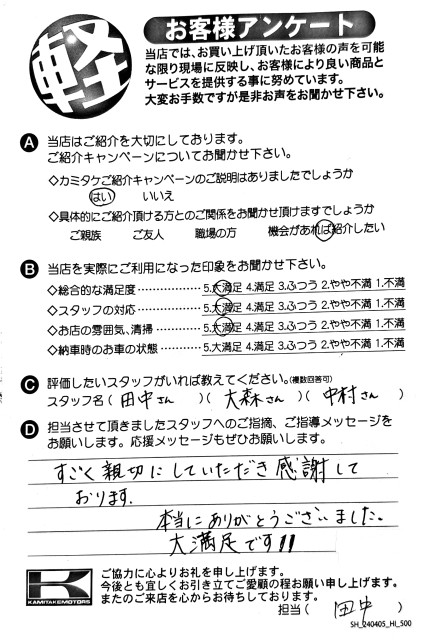 軽
お客様アンケート
当店では、お買い上げ頂いたお客様の声を可能
な限り現場に反映し、お客様により良い商品と
サービスを提供する事に努めています。
大変お手数ですが是非お声をお聞かせ下さい。
A 当店はご紹介を大切にしております。
ご紹介キャンペーンについてお聞かせ下さい。
◇カミタケご紹介キャンペーンのご説明はありましたでしょうか
はい いいえ
◇具体的にご紹介頂ける方とのご関係をお聞かせ頂けますでしょうか
ご親族 ご友人 職場の方 機会があれば紹介したい
B 当店を実際にご利用になった印象をお聞かせ下さい。
◇総合的な満足度…………5.大満足 4.満足 3.ふつう 2.やや不満 1.不満
◇スタッフの対応…………5.大満足 4.満足 3.ふつう 2.やや不満 1.不満
◇お店の雰囲気、清掃………5.大満足 4.満足 3.ふつう 2.やや不満 1.不満
◇納車時のお車の状態………5.大満足 4.満足 3.ふつう 2.やや不満 1.不満
C 評価したいスタッフがいれば教えてください。(複数回答可)
スタッフ名(田中さん)(大森さん)(中村さん)
D 担当させて頂きましたスタッフへのご指摘、ご指導メッセージを
お願いします。応援メッセージもぜひお願いします。
すごく親切にしていただき感謝して
おります。
本当にありがとうございました。
大満足です!!
K
KAMITAKEMOTORS
ご協力に心よりお礼を申し上げます。
今後とも宜しくお引き立てご愛顧の程お願い申し上げます。
またのご来店を心からお待ちしております。
担当(田中)
SH_240405_HI_500